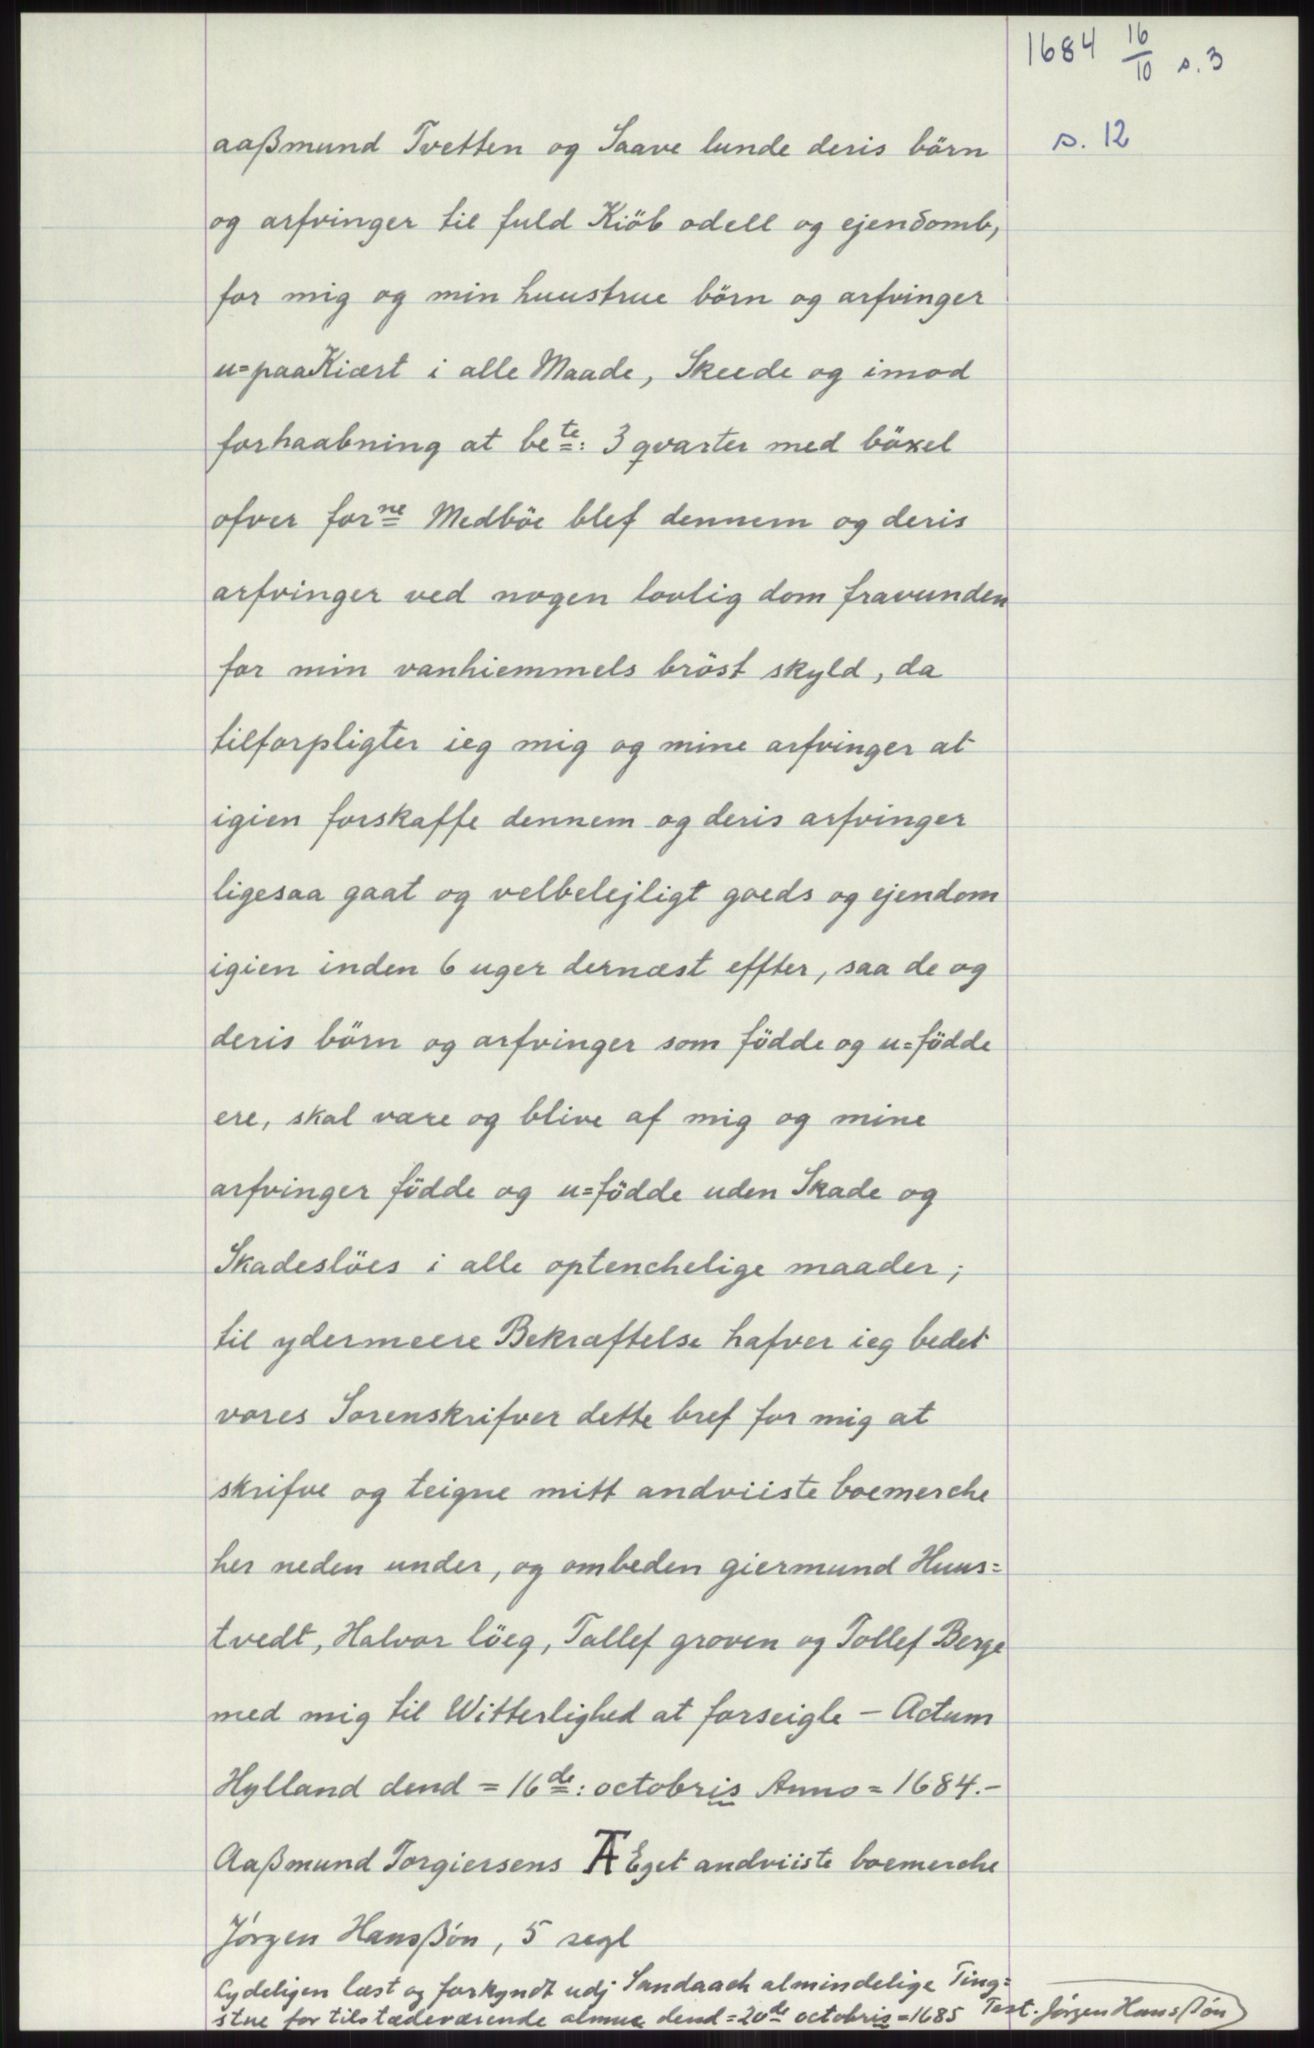 1684 16/10 s. 3
s. 12
aaßmund Tvetten og Saave lunde deris börn
og arfvinger til fuld Kiöb odell og ejendomb,
for mig og min huustrue börn og arfvinger
u=paaKiært i alle Maade, Skeede og imod
forhaabning at be<sup>te</sup>: 3 qvarter med böxel
ofver for<sup>ne</sup> Medböe blef dennem og deris
arfvinger ved nogen lovlig dom fravunden
for min vanhiemmels bröst skyld, da
tilforpligter ieg mig og mine arfvinger at
igien forskaffe dennem og deris arfvinger
ligesaa gaat og velbelejligt goeds og ejendom
igien inden 6 uger dernæst effter, saa de og
deris börn og arfvinger som födde og u=födde
ere, skal være og blive af mig og mine
arfvinger födde og u=födde uden Skade og
Skadeslöes i alle optenchelige maader;
til ydermeere Bekræftelse hafver ieg bedet
vores Sorenskrifver dette bref for mig at
skrifve og teigne mitt andviiste boemerche
her neden under, og ombeden giermund Huus=
tvedt, Halvor löeg, Tallef groven og Tollef Berge
med mig til Witterlighed at forseigle - Actum
Hylland dend = 16<sup>de</sup>: octobris Anno = 1684.-
Aaßmund Torgiersens Æ Eget andviiste boemerche
Jörgen Hansßön, 5 segl
Lydeligen læst og forkyndt udj Sandaach almindelige Ting=
stue for tilstædeværende almue dend = 20<sup>de</sup> octobris = 1685 Test. Jörgen Hansßön